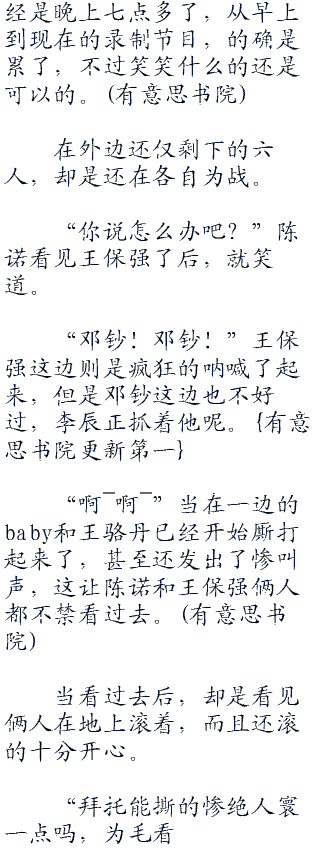 经是晚上七点多了，从早上
到现在的录制节目，的确是
累了，不过笑笑什么的还是
可以的。(有意思书院)
在外边还仅剩下的六
人，却是还在各自为战。
“你说怎么办吧？”陈
诺看见王保强了后，就笑
道。
“邓钞！邓钞！”王保
强这边则是疯狂的呐喊了起
来，但是邓钞这边也不好
过，李辰正抓着他呢。{有意
思书院更新第一}
“啊¯啊¯”当在一边的
baby和王骆丹已经开始厮打
起来了，甚至还发出了惨叫
声，这让陈诺和王保强俩人
都不禁看过去。(有意思书
院)
当看过去后，却是看见
俩人在地上滚着，而且还滚
的十分开心。
“拜托能撕的惨绝人寰
一点吗，为毛看